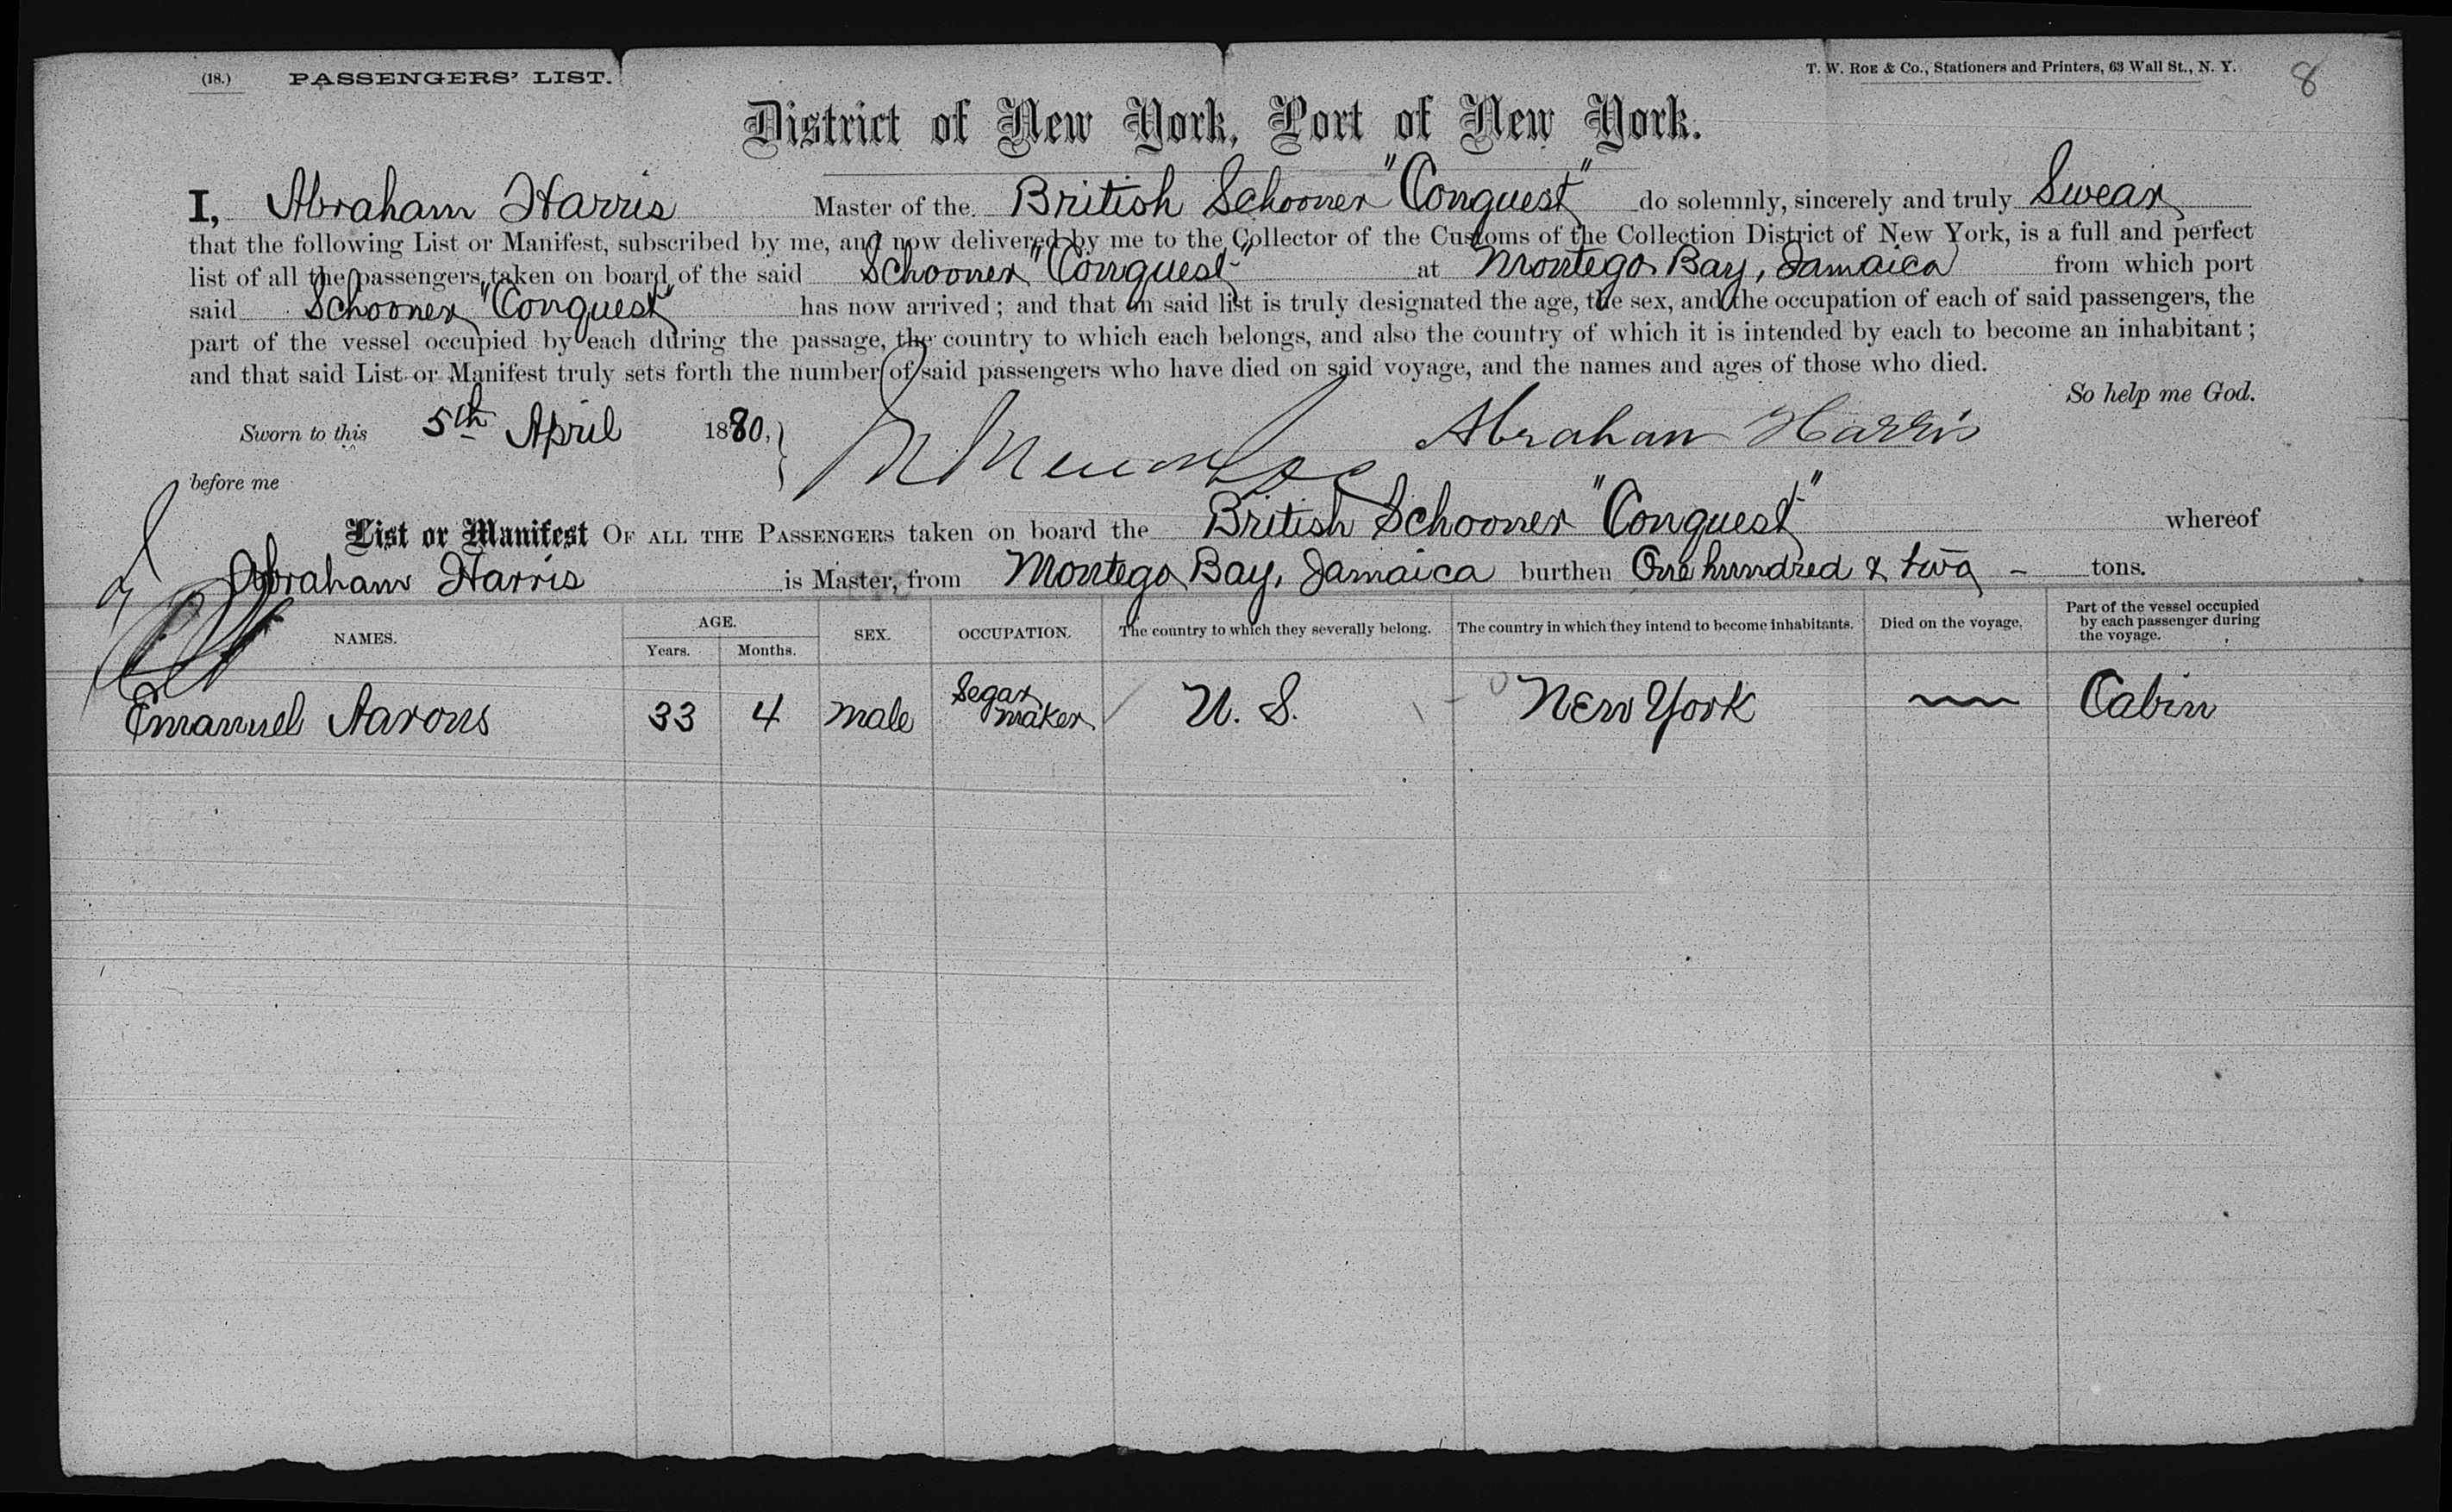 (18.) PASSENGERS' LIST. T. W. ROE & Co., Stationers and Printers, 63 Wall St., N. Y. 8
District of New York, Port of New York.
I, Abraham Harris Master of the British Schooner "Conquest" do solemnly, sincerely and truly Swear
that the following List or Manifest, subscribed by me, and now delivered by me to the Collector of the Customs of the Collection District of New York, is a full and perfect
list of all the passengers taken on board of the said Schooner "Conquest" at Montego Bay, Jamaica from which port
said Schooner "Conquest" has now arrived; and that on said list is truly designated the age, the sex, and the occupation of each of said passengers, the
part of the vessel occupied by each during the passage, the country to which each belongs, and also the country of which it is intended by each to become an inhabitant;
and that said List or Manifest truly sets forth the number of said passengers who have died on said voyage, and the names and ages of those who died.
So help me God.
Sworn to this 5th April 1880, Abraham Harris
before me
List or Manifest OF ALL THE PASSENGERS taken on board the British Schooner "Conquest" whereof
Abraham Harris is Master, from Montego Bay, Jamaica burthen One hundred & two - tons.
NAMES. AGE. Years. Months. SEX. OCCUPATION. The country to which they severally belong. The country in which they intend to become inhabitants. Died on the voyage. Part of the vessel occupied by each passenger during the voyage.
Emanuel Aarons 33 4 male Segar maker U. S. New York Cabin